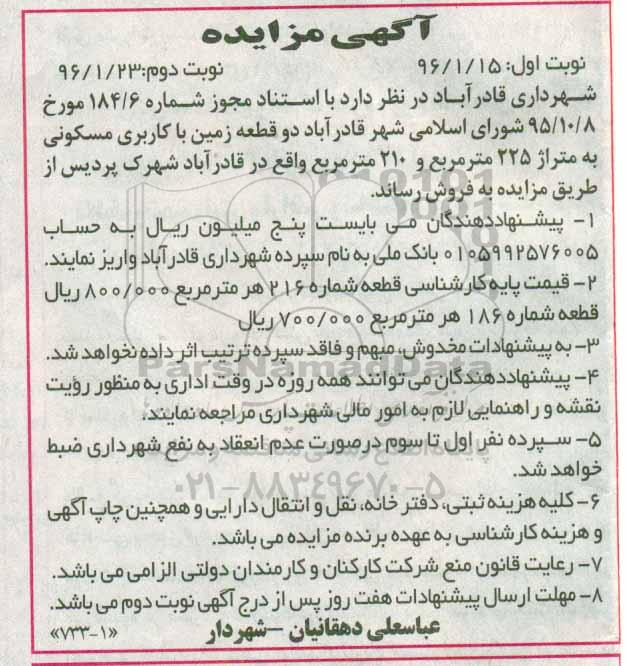 آگهی مزایده
نوبت اول: ۹۶/۱/۱۵ نوبت دوم:۹۶/۱/۲۳
شهرداری قادرآباد در نظر دارد با استناد مجوز شماره ۱۸۴/۶ مورخ
۹۵/۱۰/۸ شورای اسلامی شهر قادرآباد دو قطعه زمین با کاربری مسکونی
به متراژ ۲۲۵ مترمربع و ۲۱۰ مترمربع واقع در قادرآباد شهرک پردیس از
طریق مزایده به فروش رساند.
۱- پیشنهاددهندگان می بایست پنج میلیون ریال به حساب
۰۱۰۵۹۹۲۵۷۶۰۰۵ بانک ملی به نام سپرده شهرداری قادرآباد واریز نمایند.
۲- قیمت پایه کارشناسی قطعه شماره ۲۱۶ هر مترمربع ۸۰۰/۰۰۰ ریال
قطعه شماره ۱۸۶ هر مترمربع ۷۰۰/۰۰۰ ریال
۳- به پیشنهادات مخدوش، مبهم و فاقد سپرده ترتیب اثر داده نخواهد شد.
ParsNamadData
۴- پیشنهاددهندگان می توانند همه روزه در وقت اداری به منظور رؤیت
نقشه و راهنمایی لازم به امور مالی شهرداری مراجعه نمایند.
۵- سپرده نفر اول تا سوم درصورت عدم انعقاد به نفع شهرداری ضبط
خواهد شد.
۰۲۱-۸۸۳۴۹۶۷۰-۵
۶- کلیه هزینه ثبتی، دفتر خانه، نقل و انتقال دارایی و همچنین چاپ آگهی
و هزینه کارشناسی به عهده برنده مزایده می باشد.
۷- رعایت قانون منع شرکت کارکنان و کارمندان دولتی الزامی می باشد.
۸- مهلت ارسال پیشنهادات هفت روز پس از درج آگهی نوبت دوم می باشد.
عباسعلی دهقانیان -شهردار «۷۳۳-۱»